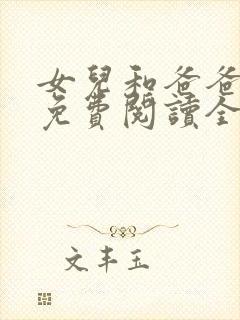 女兒和爸爸
免費閱讀全
文丰玉